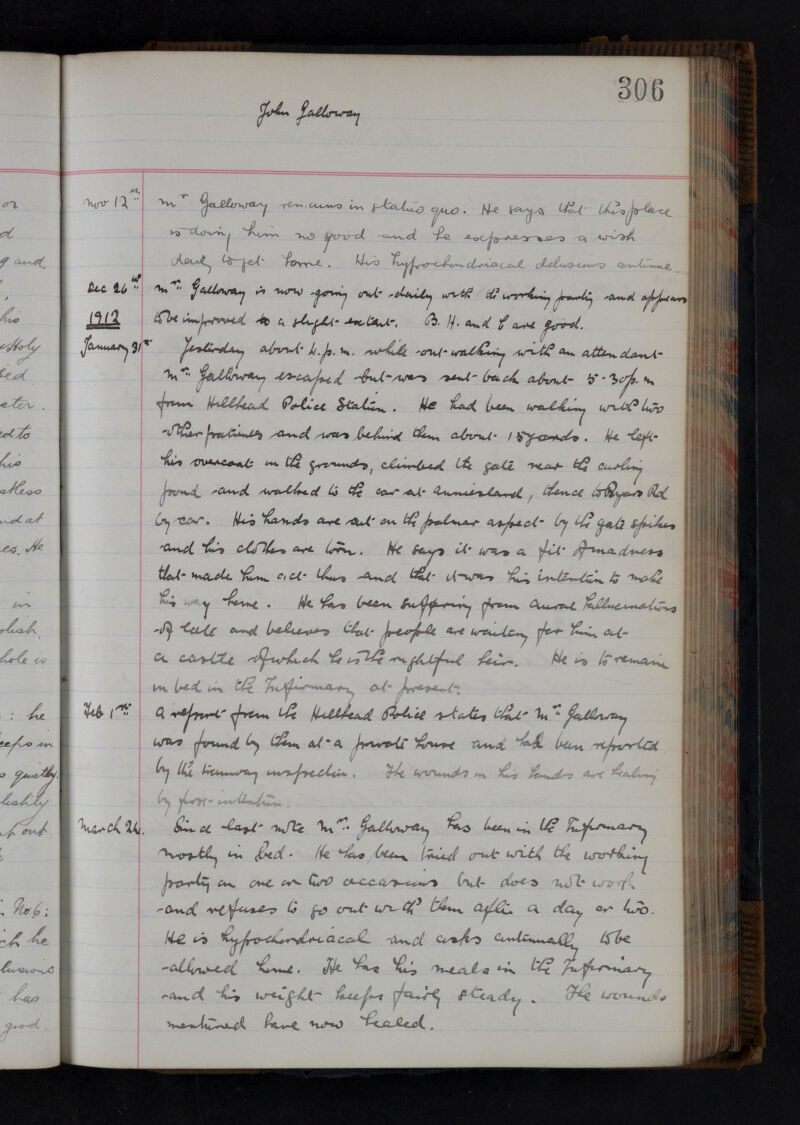 306
John Galloway
Nov 12th Mr Galloway remains in statuo quo. He says that this place
is doing him no good and he expresses a wish
daily to get home. His hypochondriacal delusions continue.
Dec 26th Mr. Galloway is now going out daily with the working party and appears
1912 to be improved to a slight extent. B. H. and C are good.
January 31st Yesterday about 4.p.m. while out walking with an attendant
Mr. Galloway escaped but was sent back about 5-30p.m
from Hillhead Police Station. He had been walking with two
other patients and was behind them about 15 yards. He left
his overcoat in the grounds, climbed the gate near the curling
pond and walked to the car at Anniesland, thence to Byars Rd
by car. His hands are cut on the palmar aspect by the gate spikes
and his clothes are torn. He says it was a fit of madness
that made him act thus and that it was his intention to make
his way home. He has been suffering from aural hallucinations
of late and believes that people are waiting for him at
a castle of which he is the rightful heir. He is to remain
in bed in the Infirmary at present.
Feb 1st A report from the Hillhead Police states that Mr. Galloway
was found by them at a private house and had been reported
by the tramway inspector. The wounds on his hands are healing
by first intention.
March 24. Since last note Mr. Galloway has been in the Infirmary
mostly in bed. He has been tried out with the working
party on one or two occasions but does not work
and refuses to go out with them after a day or two.
He is hypochondriacal and asks continually to be
allowed home. He has his meals in the Infirmary
and his weight keeps fairly steady. The wounds
mentioned have now healed.